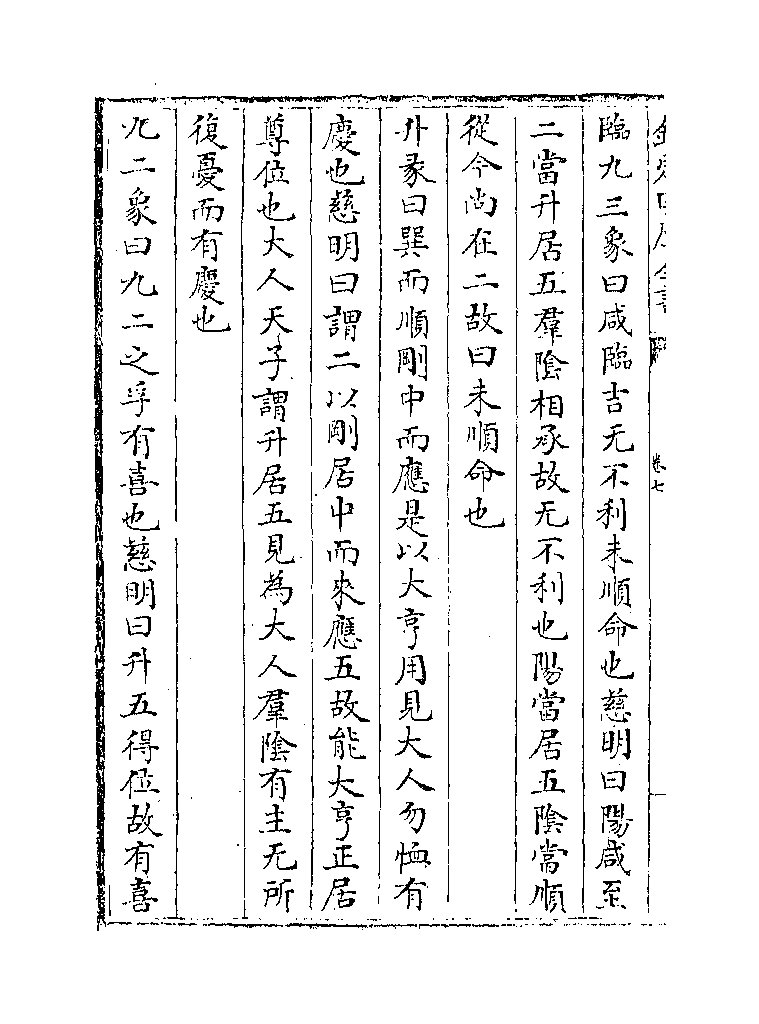 欽定四庫全書
卷七
臨九三象曰咸臨吉无不利未順命也慈明曰陽咸至
二當升居五羣陰相承故无不利也陽當居五陰當順
從今尚在二故曰未順命也
升彖曰巽而順剛中而應是以大亨用見大人勿恤有
慶也慈明曰謂二以剛居中而來應五故能大亨正居
尊位也大人天子謂升居五見為大人羣陰有主无所
復憂而有慶也
九二象曰九二之孚有喜也慈明曰升五得位故有喜